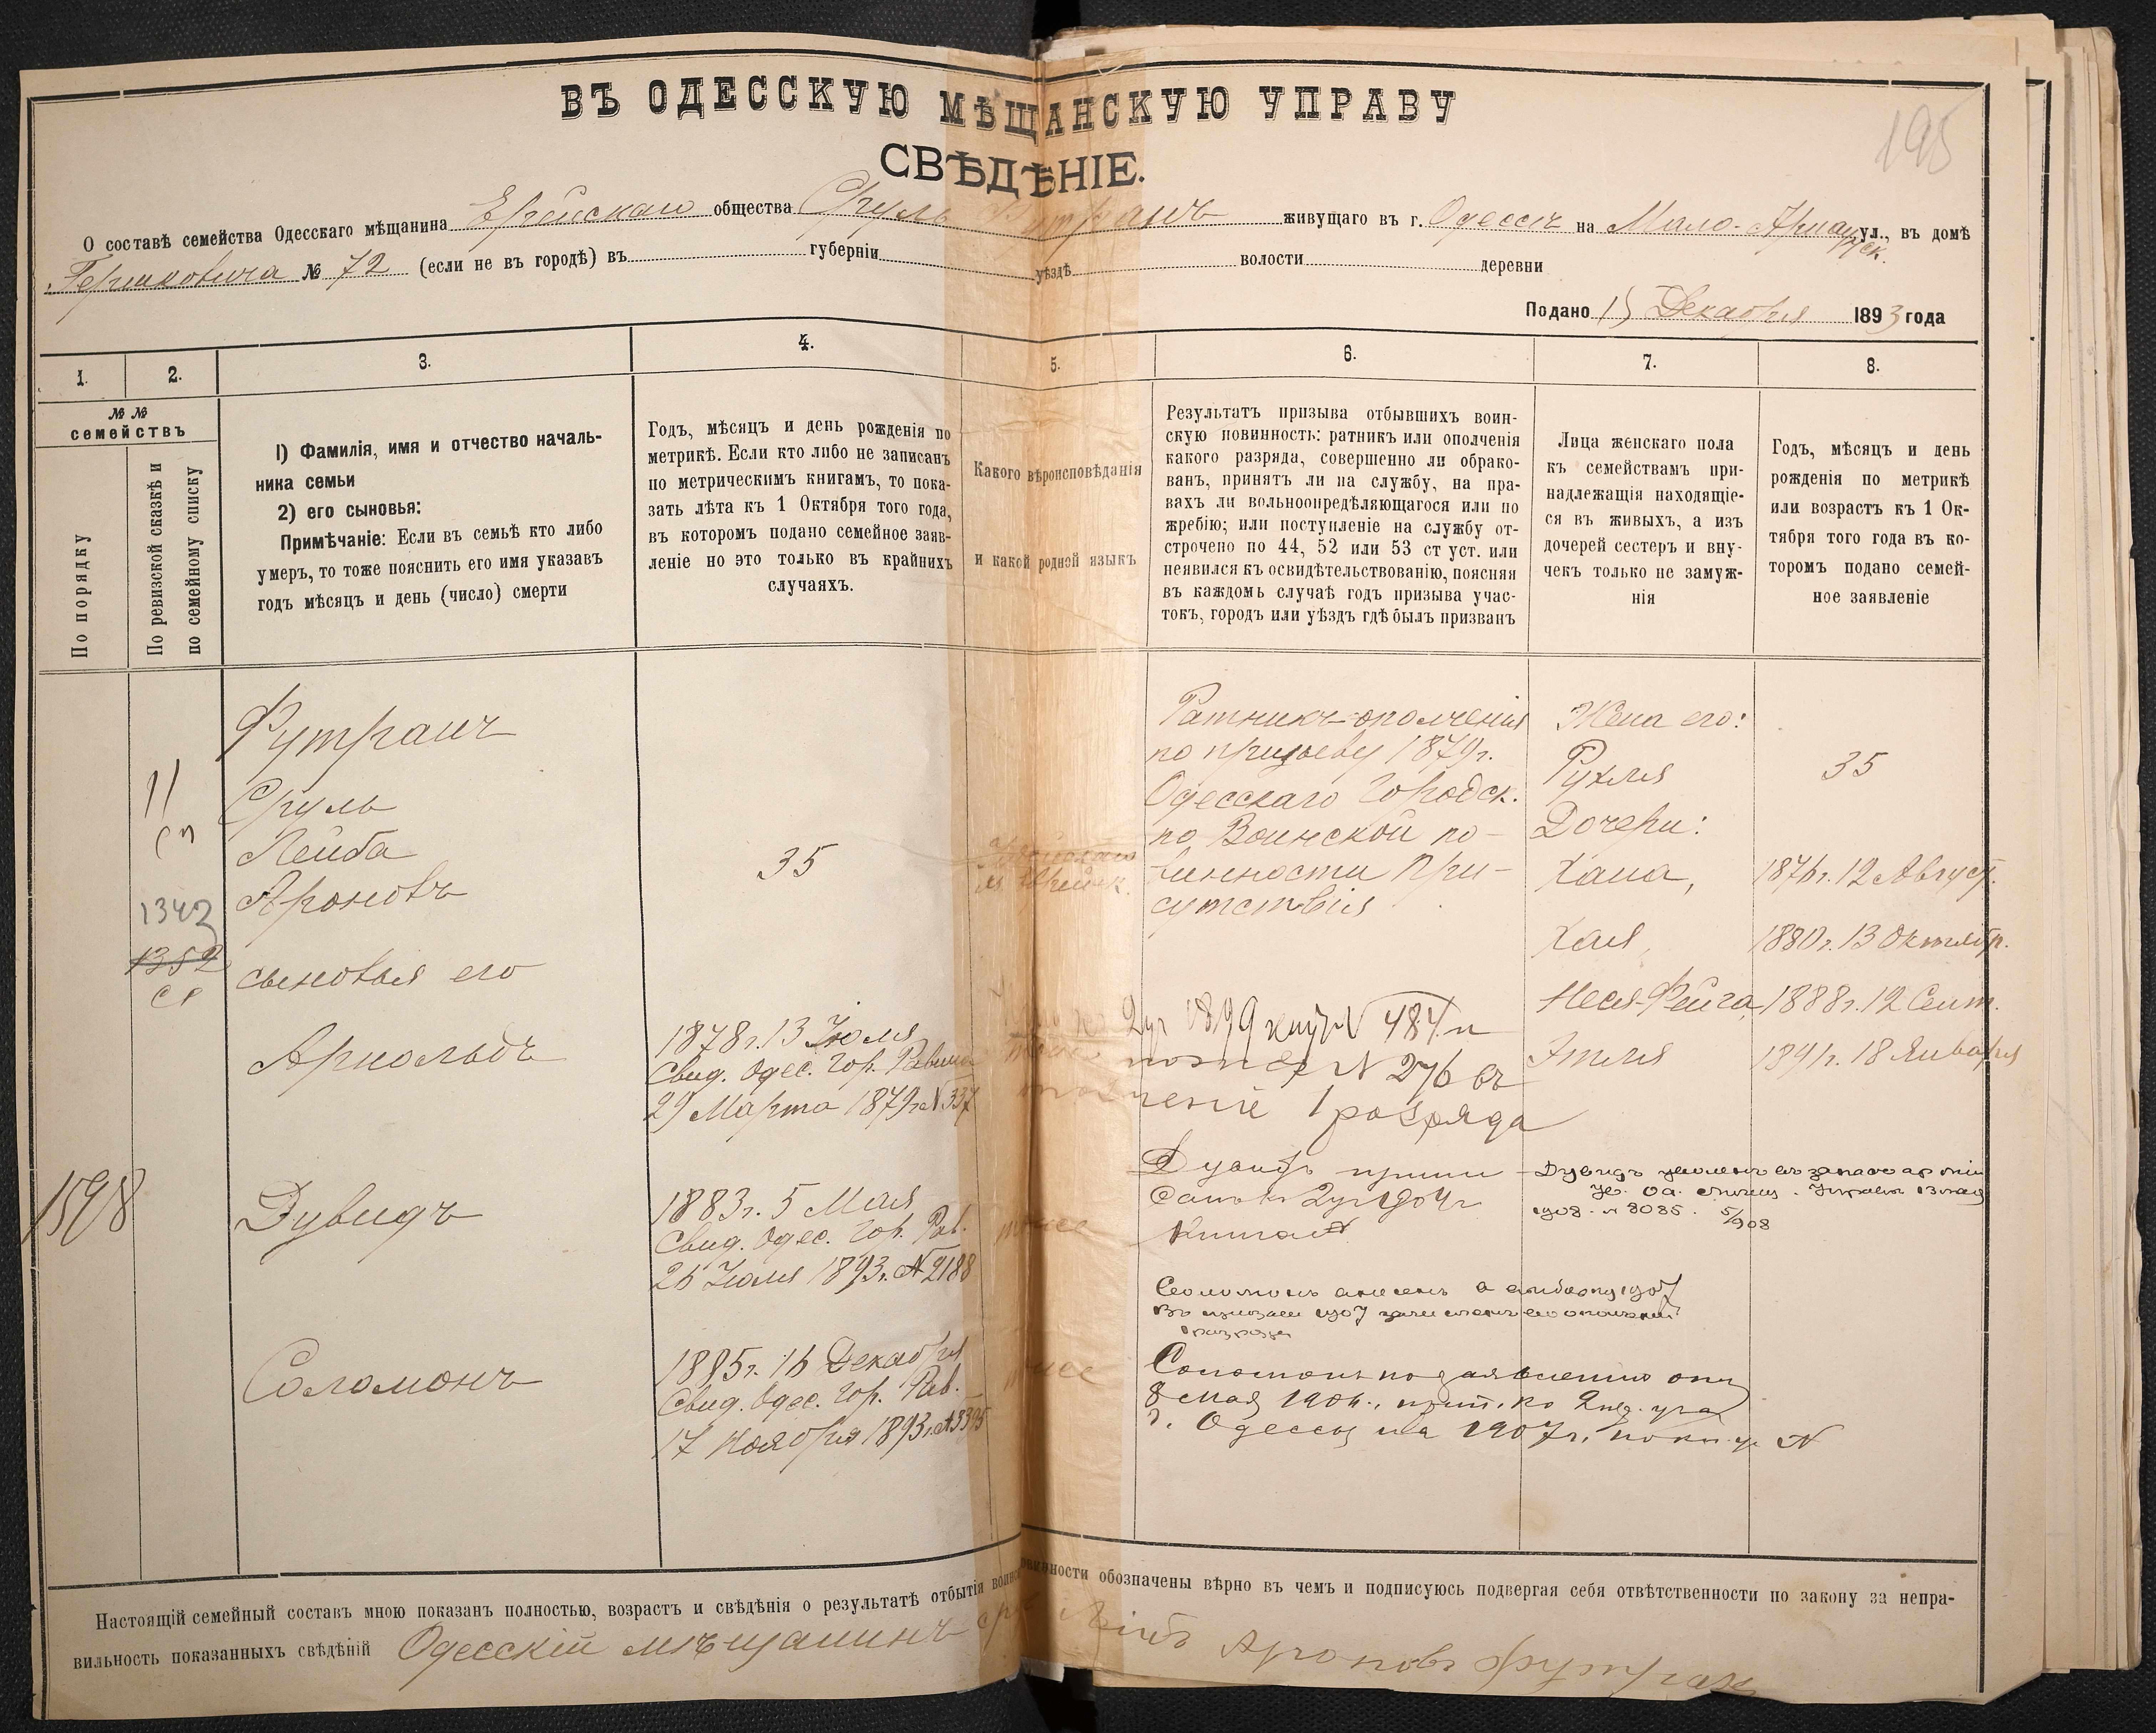 195
ВЪ ОДЕССКУЮ МѢЩАНСКУЮ УПРАВУ
СВѢДѢНІЕ.
О составѣ семейства Одесскаго мѣщанина Еврейскаго общества Сруль Футранъ живущаго въ г. Одессѣ на Мало-Арнаутск. ул., въ домѣ
Гершковича № 72 (если не въ городѣ) въ губерніи уѣздѣ волости деревни
Подано 15 Декабря 1893 года
1. 2. 3. 4. 5. 6. 7. 8.
№ №
семействъ
По порядку
По ревизской сказкѣ и
по семейному списку
1) Фамилія, имя и отчество началь-
ника семьи
2) его сыновья:
Примѣчаніе: Если въ семьѣ кто либо
умеръ, то тоже пояснить его имя указавъ
годъ мѣсяцъ и день (число) смерти
Годъ, мѣсяцъ и день рожденія по
метрикѣ. Если кто либо не записанъ
по метрическимъ книгамъ, то пока-
зать лѣта къ 1 Октября того года,
въ которомъ подано семейное заяв-
леніе но это только въ крайнихъ
случаяхъ.
Какого вѣроисповѣданія
и какой родной языкъ
Результатъ призыва отбывшихъ воин-
скую повинность: ратникъ или ополченія
какого разряда, совершенно ли обрако-
ванъ, принятъ ли на службу, на пра-
вахъ ли вольноопредѣляющагося или по
жребію; или поступленіе на службу от-
строчено по 44, 52 или 53 ст уст. или
неявился къ освидѣтельствованію, поясняя
въ каждомъ случаѣ годъ призыва учас-
токъ, городъ или уѣздъ гдѣ былъ призванъ
Лица женскаго пола
къ семействамъ при-
надлежащія находящіе-
ся въ живыхъ, а изъ
дочерей сестеръ и вну-
чекъ только не замуж-
нія
Годъ, мѣсяцъ и день
рожденія по метрикѣ
или возрастъ къ 1 Ок-
тября того года въ ко-
торомъ подано семей-
ное заявленіе
11
сп
1342
1352
ся
1598
Футранъ
Сруль
Лейба
Ароновъ
сыновья его
Арнольдъ
Дувидъ
Соломонъ
35
1878 г. 13 Іюля
Свид. Одес. Гор. Равина
29 Марта 1879 г. № 337
1883 г. 5 Мая
Свид. Одес. Гор. Рав.
26 Іюля 1893 г. № 2188
1885 г. 16 Декабря
Свид. Одес. Гор. Рав.
17 Ноября 1893 г. № 3395
тоже
тоже
Ратникъ ополченія
по призыву 1879 г.
Одесскаго Городск.
по Воинской по-
винности При-
сутствія
2 уч 1899 № 484 и
№ 276 въ
ополченіе 1 разряда
Дувидъ
2 уч 1904 г
Соломонъ 1907
1907 ополченія
1 разряда
Соломонъ по заявленію
8 мая 1904 г., прип. ко 2 уч
г. Одессы на 1907 г. №
Жена его:
Рухля
Дочери:
Хана,
Хая,
Неся-Фейга
Этля
Дувидъ уволенъ въ запасъ арміи
1908 № 8085. 5/908
35
1876 г. 12 Август.
1880 г. 13 Октябр.
1888 г. 12 Сент.
1891 г. 18 Января
Настоящій семейный составъ мною показанъ полностью, возрастъ и свѣдѣнія о результатѣ отбытія воинской повинности обозначены вѣрно въ чемъ и подписуюсь подвергая себя отвѣтственности по закону за непра-
вильность показанныхъ свѣдѣній Одесскій мѣщанинъ Сруль Лейбъ Ароновъ Футранъ